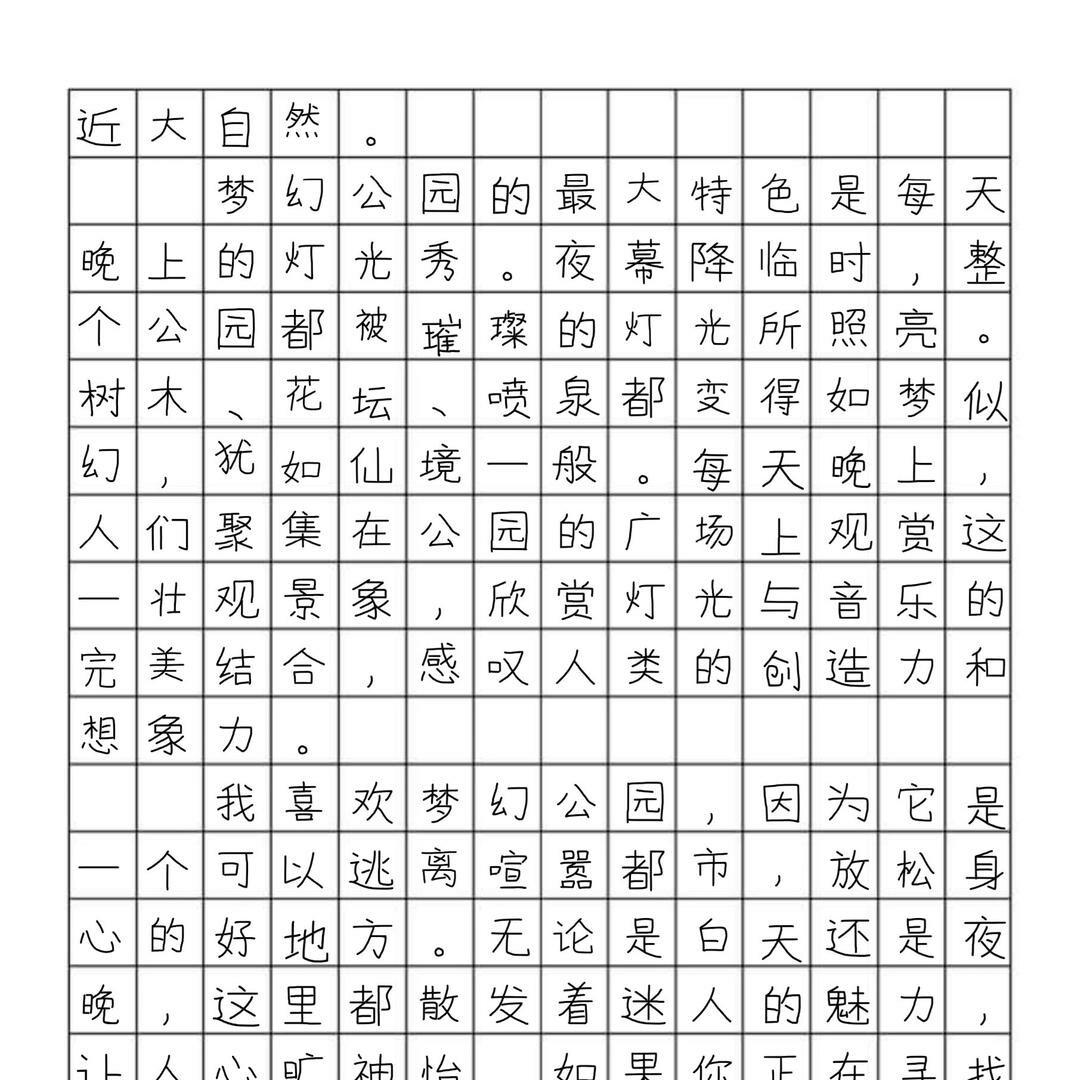 近大自然。
梦幻公园的最大特色是每天
晚上的灯光秀。夜幕降临时,整
个公园都被璀璨的灯光所照亮。
树木、花坛、喷泉都变得如梦似
幻,犹如仙境一般。每天晚上,
人们聚集在公园的广场上观赏这
一壮观景象,欣赏灯光与音乐的
完美结合,感叹人类的创造力和
想象力。
我喜欢梦幻公园,因为它是
一个可以逃离喧嚣都市,放松身
心的好地方。无论是白天还是夜
晚,这里都散发着迷人的魅力,
让人心旷神怡 如果你正在寻找